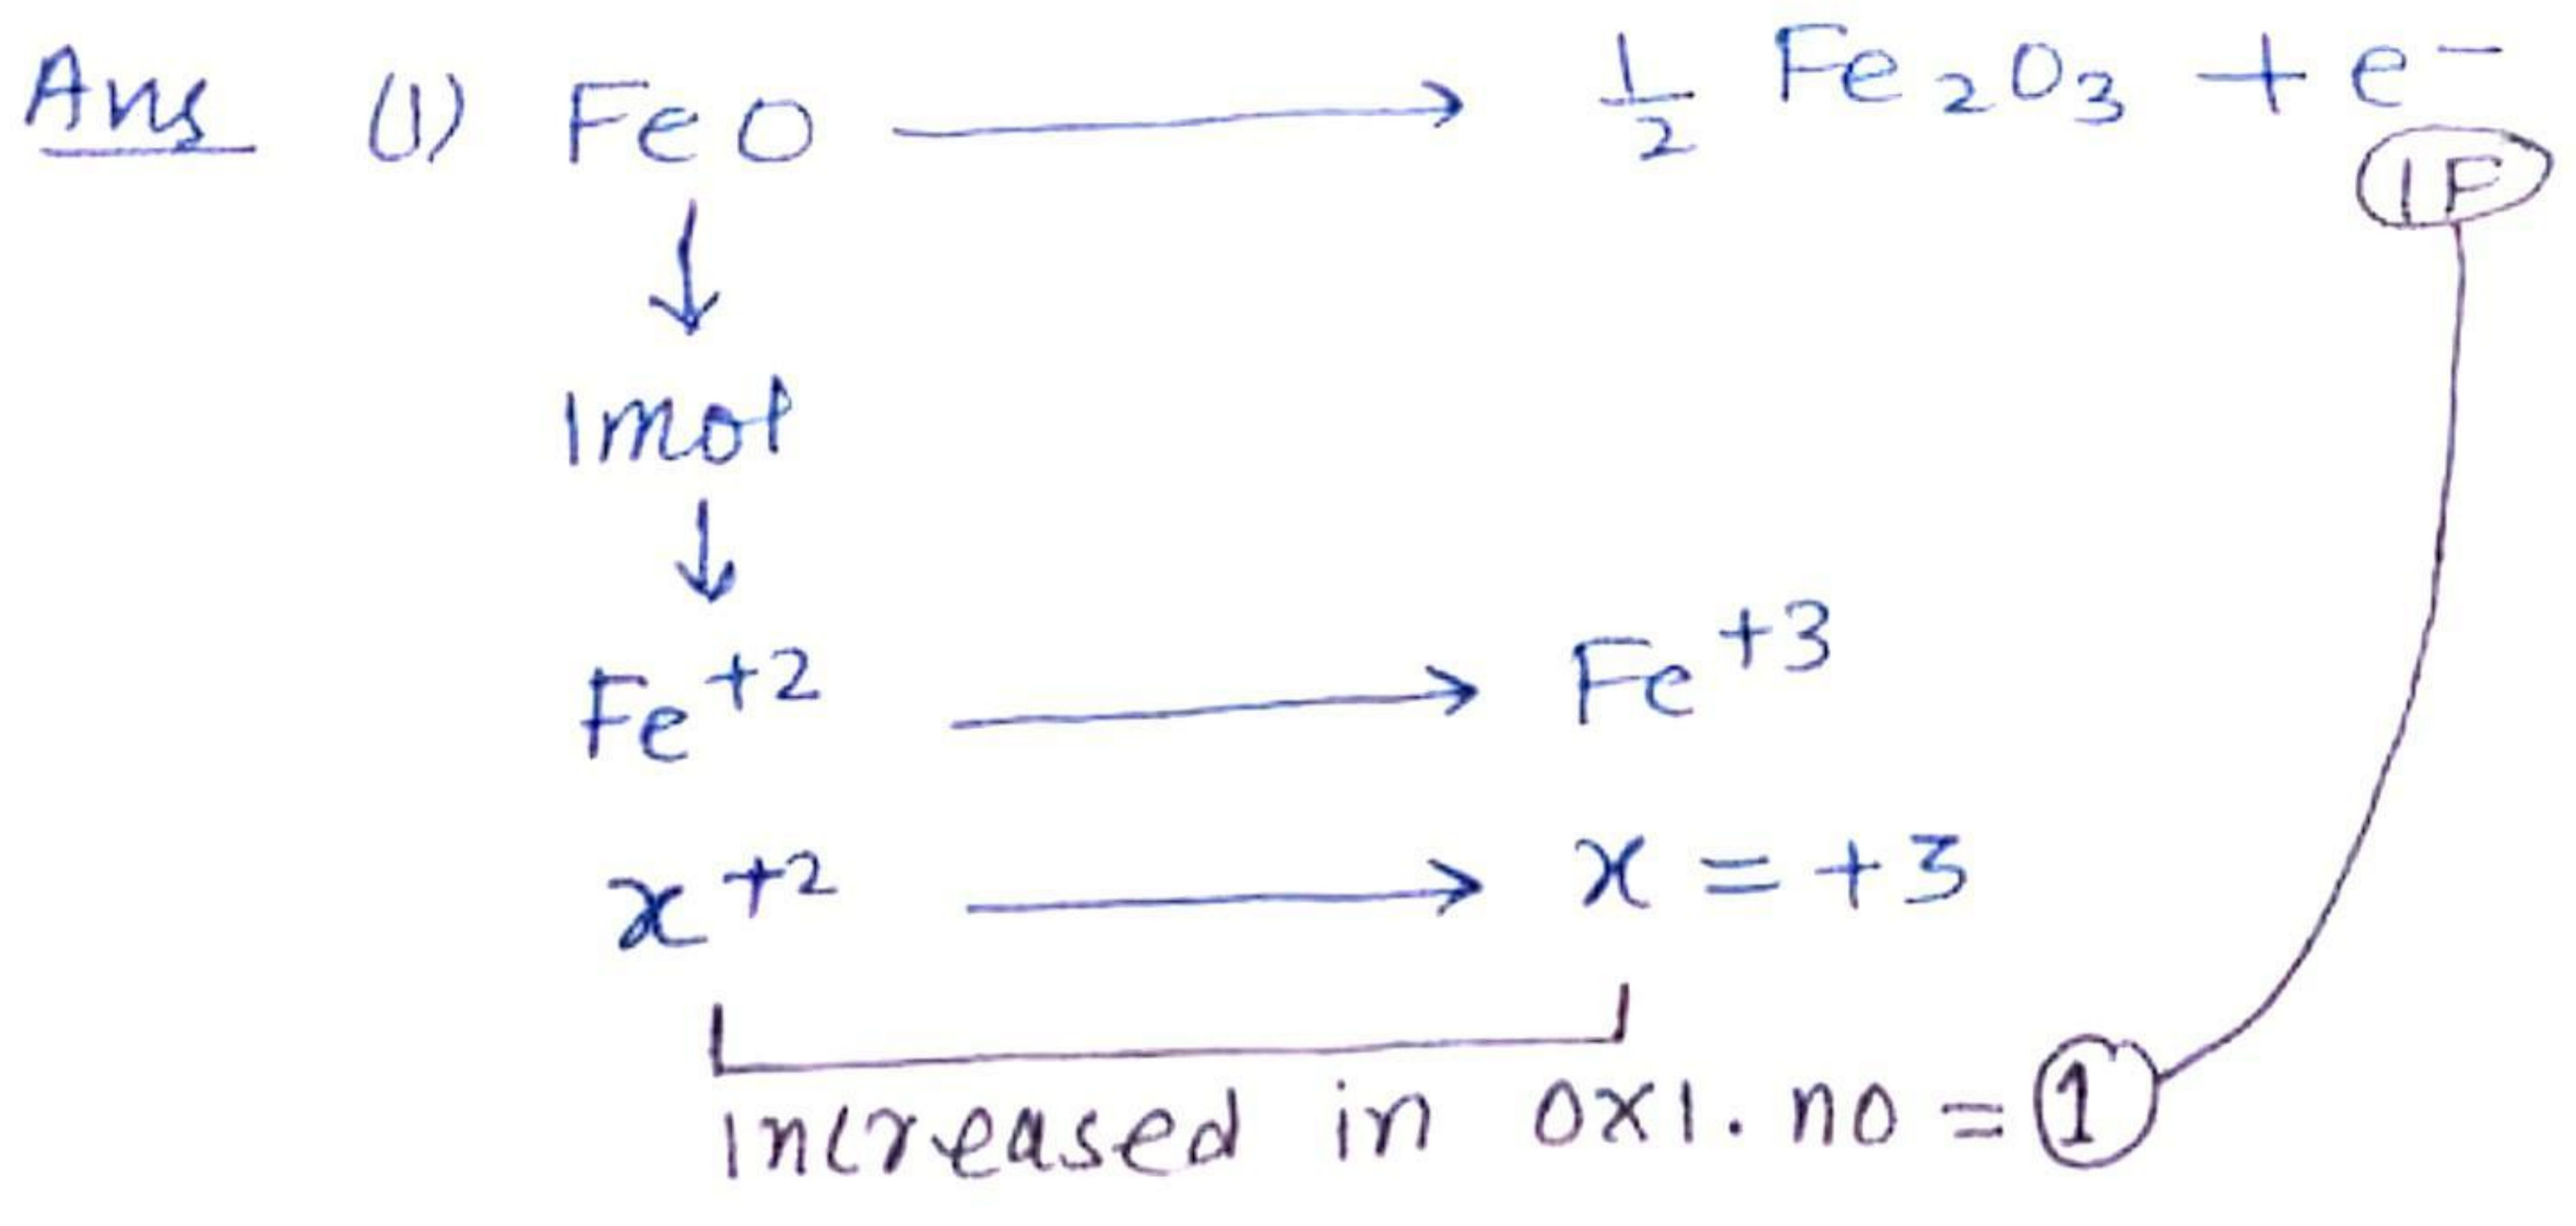 Ans (1) FeO ⟶ 1/2 Fe₂O₃ + e⁻
1F
↓
1mol
↓
Fe⁺² ⟶ Fe⁺³
x⁺² ⟶ x = +3
increased in oxi. no = 1